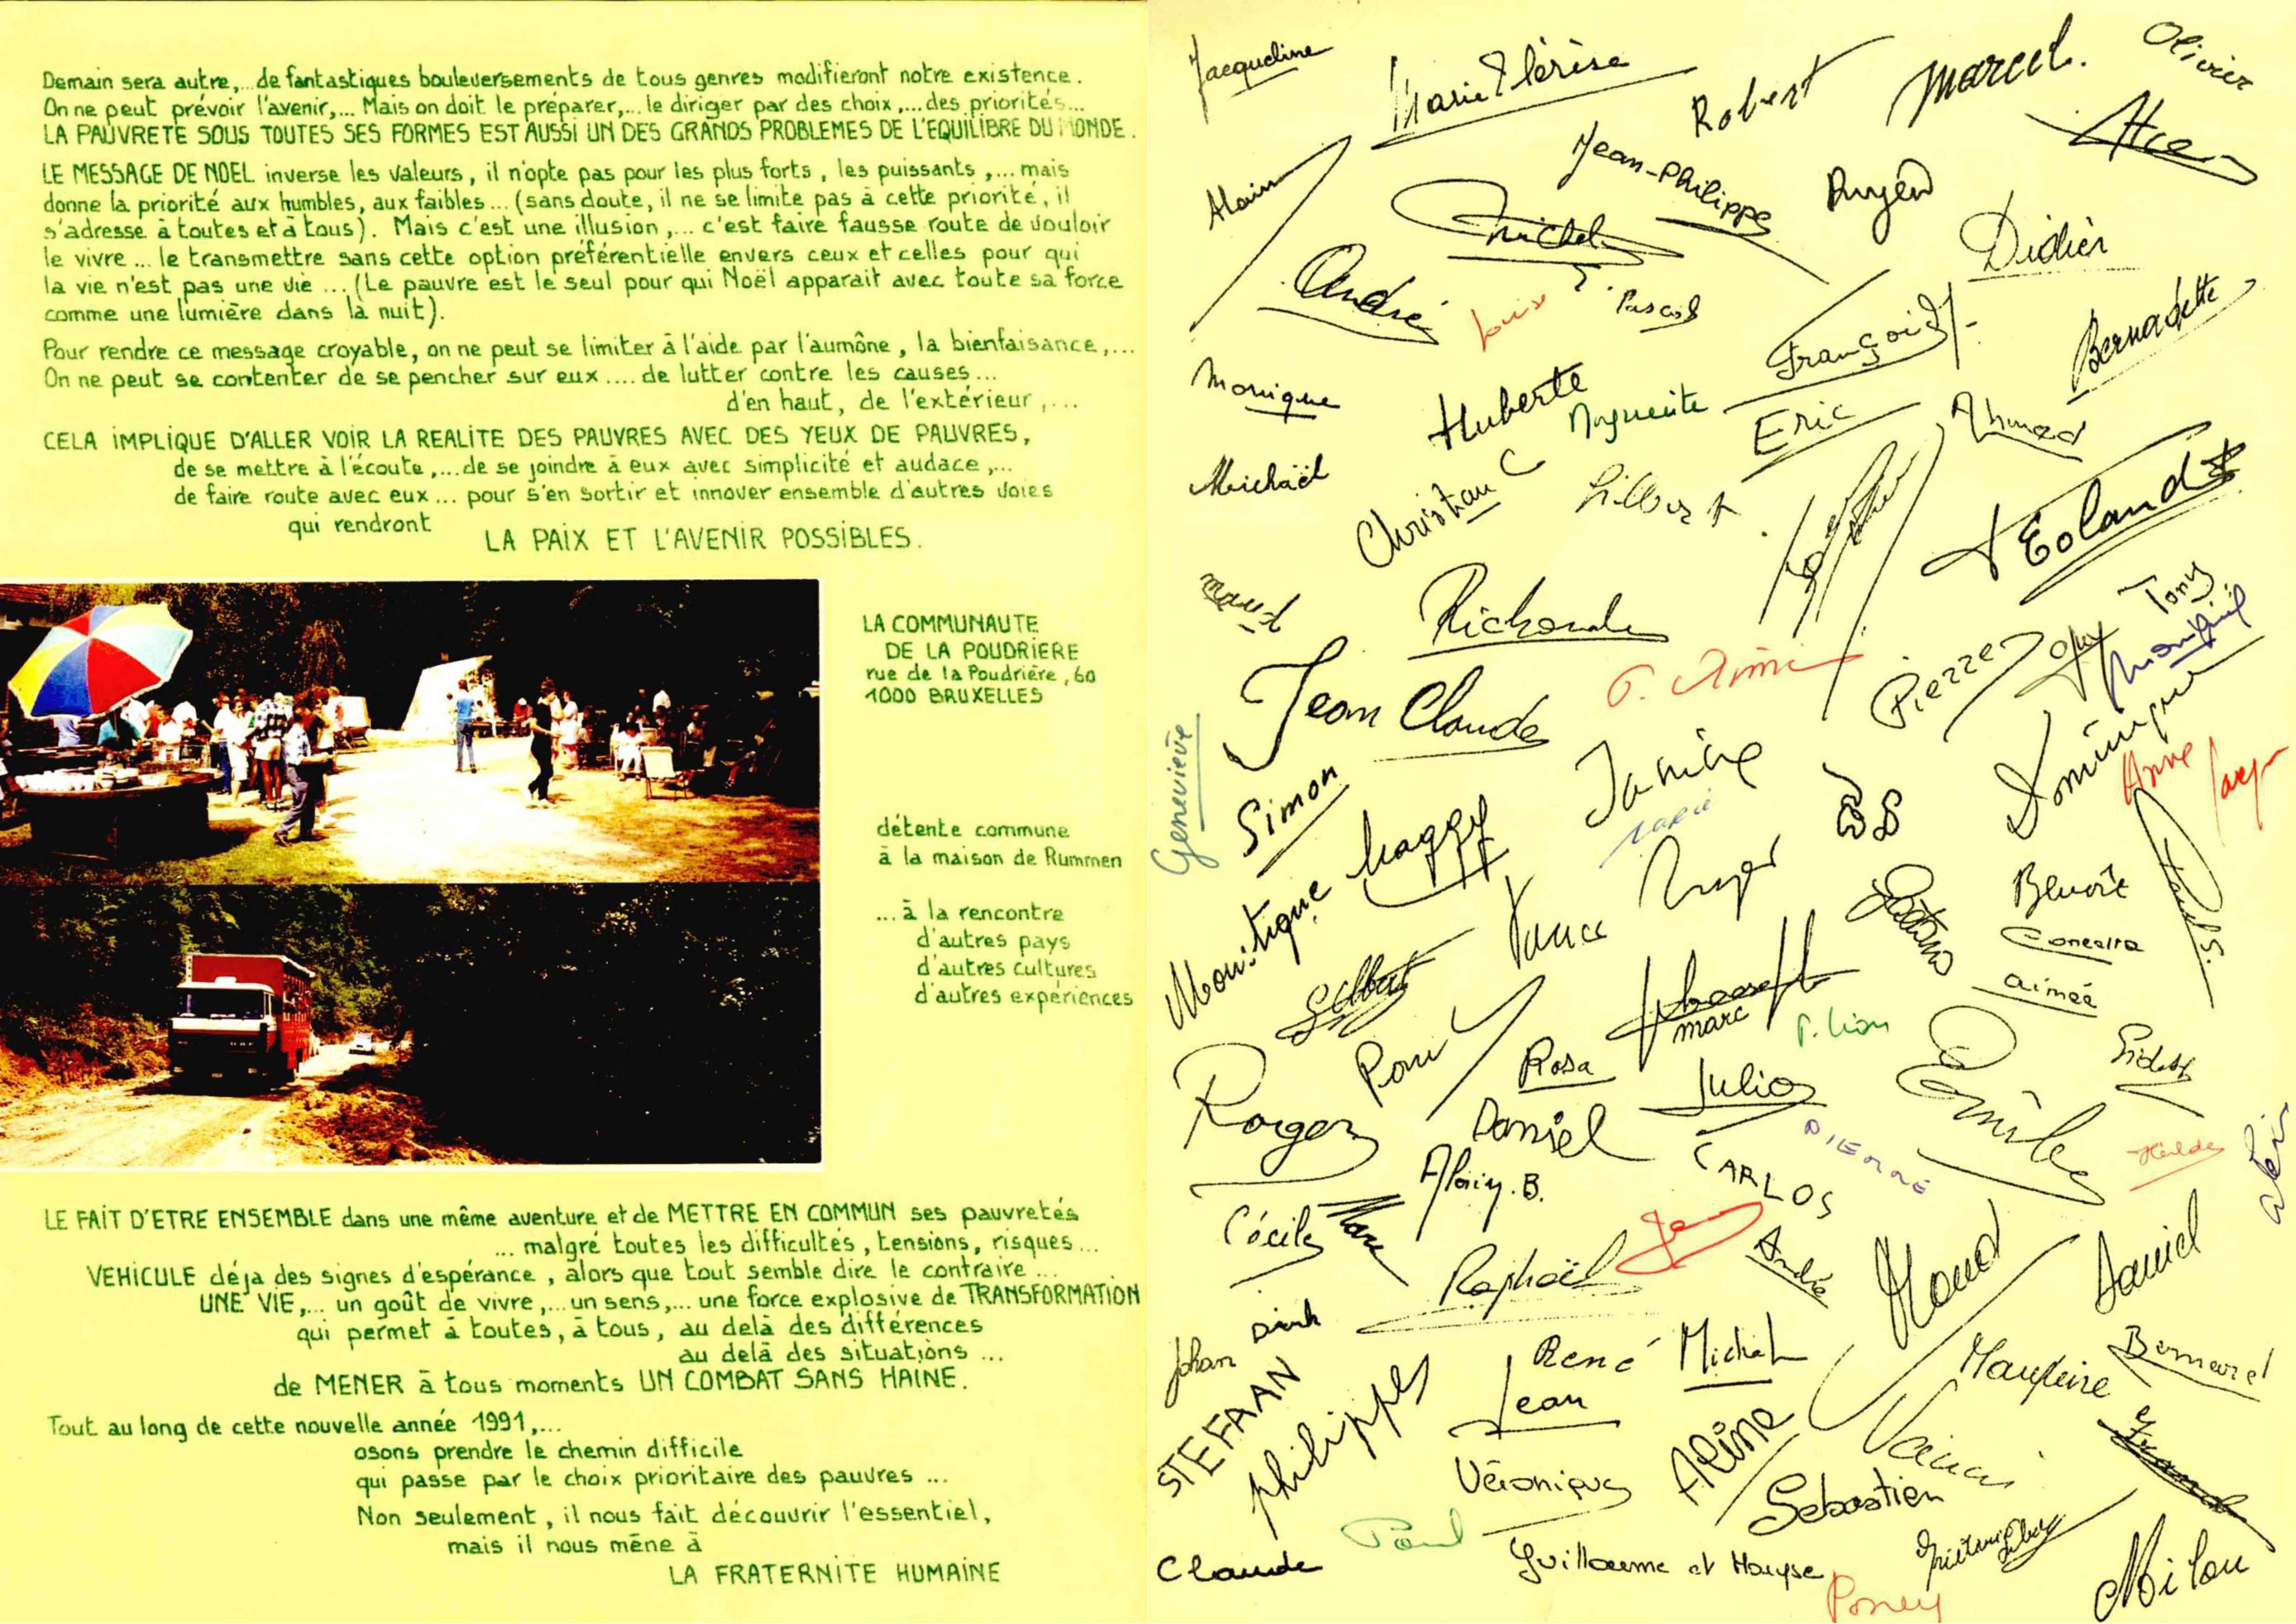 Demain sera autre,... de fantastiques bouleversements de tous genres modifieront notre existence.
On ne peut prévoir l'avenir,... Mais on doit le préparer,... le diriger par des choix,... des priorités...
LA PAUVRETE SOUS TOUTES SES FORMES EST AUSSI UN DES GRANDS PROBLEMES DE L'EQUILIBRE DU MONDE.
LE MESSAGE DE NOEL inverse les valeurs, il n'opte pas pour les plus forts, les puissants,... mais
donne la priorité aux humbles, aux faibles... (sans doute, il ne se limite pas à cette priorité, il
s'adresse à toutes et à tous). Mais c'est une illusion,... c'est faire fausse route de vouloir
le vivre... le transmettre sans cette option préférentielle envers ceux et celles pour qui
la vie n'est pas une vie... (Le pauvre est le seul pour qui Noël apparait avec toute sa force
comme une lumière dans la nuit).
Pour rendre ce message croyable, on ne peut se limiter à l'aide par l'aumône, la bienfaisance,...
On ne peut se contenter de se pencher sur eux.... de lutter contre les causes...
d'en haut, de l'extérieur,...
CELA IMPLIQUE D'ALLER VOIR LA REALITE DES PAUVRES AVEC DES YEUX DE PAUVRES,
de se mettre à l'écoute,... de se joindre à eux avec simplicité et audace,...
de faire route avec eux... pour s'en sortir et innover ensemble d'autres voies
qui rendront
LA PAIX ET L'AVENIR POSSIBLES.
LA COMMUNAUTE
DE LA POUDRIERE
rue de la Poudrière, 60
1000 BRUXELLES
détente commune
à la maison de Rummen
... à la rencontre
d'autres pays
d'autres cultures
d'autres expériences
LE FAIT D'ETRE ENSEMBLE dans une même aventure et de METTRE EN COMMUN ses pauvretés
... malgré toutes les difficultés, tensions, risques...
VEHICULE déja des signes d'espérance, alors que tout semble dire le contraire...
UNE VIE,... un goût de vivre,... un sens,... une force explosive de TRANSFORMATION
qui permet à toutes, à tous, au delà des différences
au delà des situations...
de MENER à tous moments UN COMBAT SANS HAINE.
Tout au long de cette nouvelle année 1991,...
osons prendre le chemin difficile
qui passe par le choix prioritaire des pauvres...
Non seulement, il nous fait découvrir l'essentiel,
mais il nous mène à
LA FRATERNITE HUMAINE
Jacqueline
Marie Thérèse
Robert
Marcel.
Olivier
Alain
Jean-Philippe
Michel
Didier
André
Louis
Pascal
François
Bernadette
Monique
Huberte
Marguerite
Eric
Ahmed
Michaël
Christian C
Gilbert
Maud
Richard
Tony
Jean Claude
Pierre
Guy
Dominique
Geneviève
Simon
Janine
Marie
Anne
Maggy
Roger
Gaetano
Benoit
Paul S.
Concetta
Aimée
Gilbert
Marc
P. Lion
Rosa
Julio
Emile
Roger
Daniel
Alain. B.
CARLOS
PIERRE
Hilde
Cécile
Marc
Raphaël
André
Maud
Daniel
Johan
Dirk
STEFAAN
Philippe
René
Michel
Jean
Bernard
Véronique
Aline
Sébastien
Paul
Claude
Guillaume et Mayse
Poney
Milou